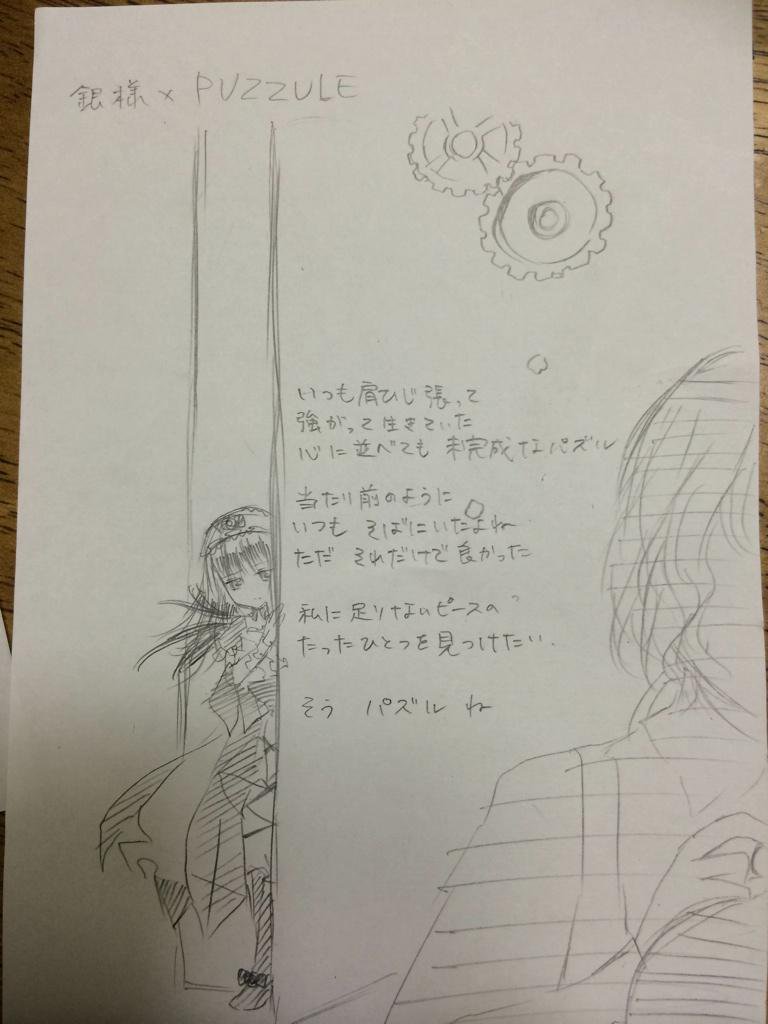 銀様 × PUZZULE
いつも肩ひじ張って
強がって生きていた
心に並べても 未完成なパズル
当たり前のように
いつも そばにいたよね
ただ それだけで良かった
私に足りないピースの
たったひとつを見つけたい..
そう パズル ね